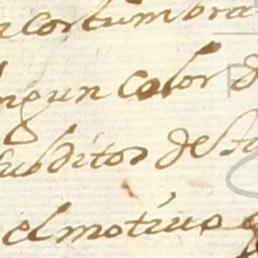 acostumbra
ningun color d
subditos de su
el motiuo q